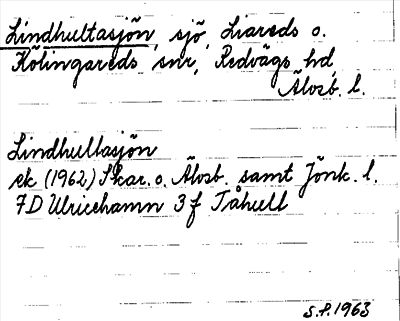 Lindhultasjön, sjö, Liareds o.
Kölingareds snr, Redvägs hd,
Älvsb. l.
Lindhultasjön
ek (1962) Skar. o. Älvsb. samt Jönk. l.
7D Ulricehamn 3f Tåhult
S.P. 1963